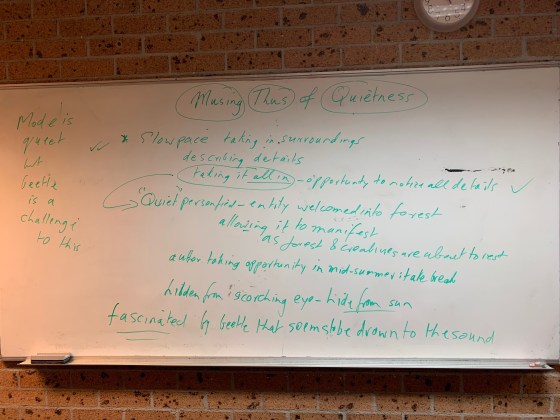 Musing Thus of Quietness
Mode is
quiet
but
beetle
is a
challenge
to this
* Slow pace taking in surroundings
describing details
taking it all in - opportunity to notice all details
"Quiet" personified - entity welcomed into forest
allowing it to manifest
as forest & creatures are about to rest
author taking opportunity in mid-summer take break
hidden from 'scorching eye - hide from sun
fascinated by beetle that seems to be drawn to the sound